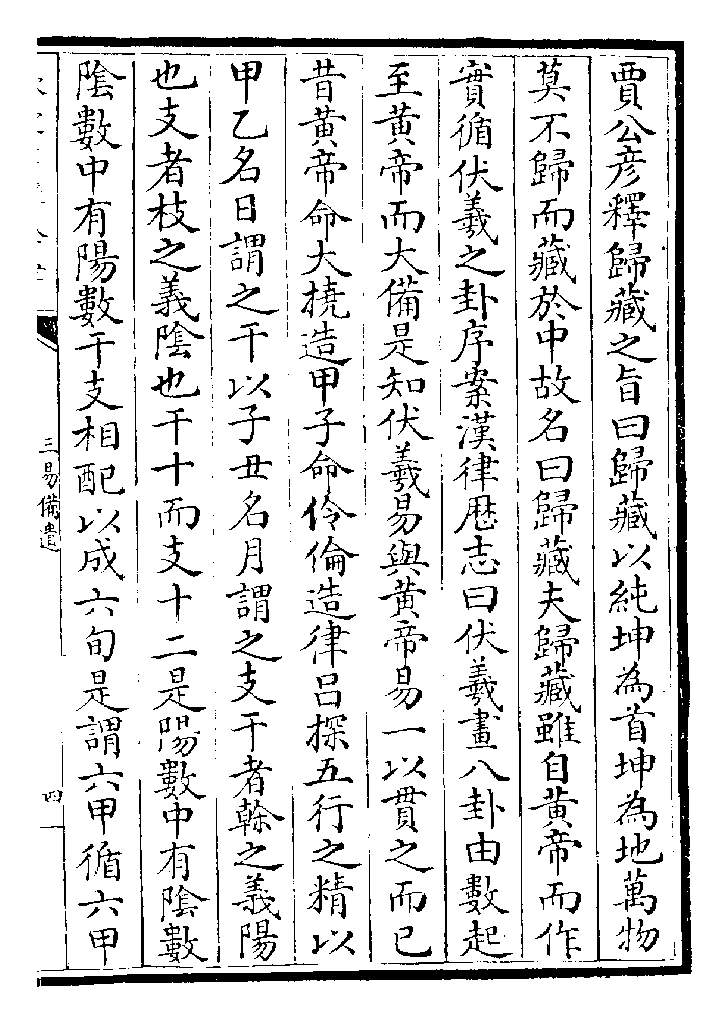 賈公彦釋歸藏之旨曰歸藏以純坤為首坤為地萬物
莫不歸而藏於中故名曰歸藏夫歸藏雖自黄帝而作
實循伏羲之卦序案漢律厯志曰伏羲畫八卦由數起
至黄帝而大備是知伏羲易與黄帝易一以貫之而已
昔黄帝命大撓造甲子命伶倫造律吕探五行之精以
甲乙名日謂之干以子丑名月謂之支干者榦之義陽
也支者枝之義陰也干十而支十二是陽數中有陰數
陰數中有陽數干支相配以成六旬是謂六甲循六甲
三易備遺
四